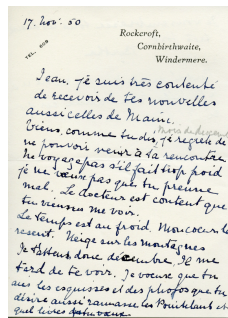 17. Nov. 50
TEL. 609
Rockcroft,
Cornbirthwaite,
Windermere.
Jean, je suis très contente
de recevoir de tes nouvelles
aussi celles de
comme tu dis, je regrete de
ne pouvoir venir à ta rencontre
Ne voyage pas s'il fait trop froid
je ne veuse pas que tu prenne
mal. Le docteur est content que
tu viense me voir.
Le temps est au froid. Mon cœur le
resent. Neige sur les montagnes
Je t'attend donc décembre. Il me
tard de te voir. Je veuse que tu
ais les esquisses et des photos que tu
désire aussi et
quel livres